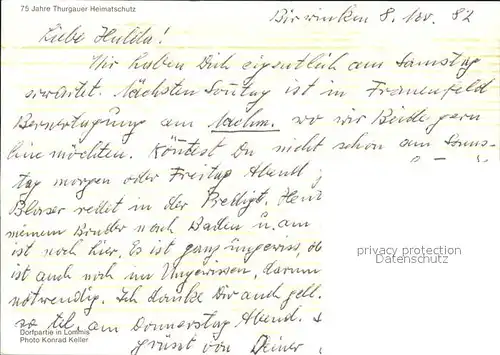 75 Jahre Thurgauer Heimatschutz
Birwinken 8. Nov. 82
Liebe Hulda!
Wir haben Dich eigentlich am Samstag
erwartet. Nächsten Sontag ist in Frauenfeld
am Nachm. wo wir Beide gern
hine möchten. Köntest Du nicht schon am Sams-
tag morgen oder Freitag Abend
Blaser redet in der Predigt. Heut
meinem Bruder nach Baden u. am
ist noch hier. Es ist ganz ungewiss, ob
ist auch noch im Ungewissen, darum
notwendig. Ich danke Dir auch gell.
so tel. am Donnerstag Abend.
grüsst von Deiner
privacy protection
Datenschutz
Dorfpartie in Lommis
Photo Konrad Keller